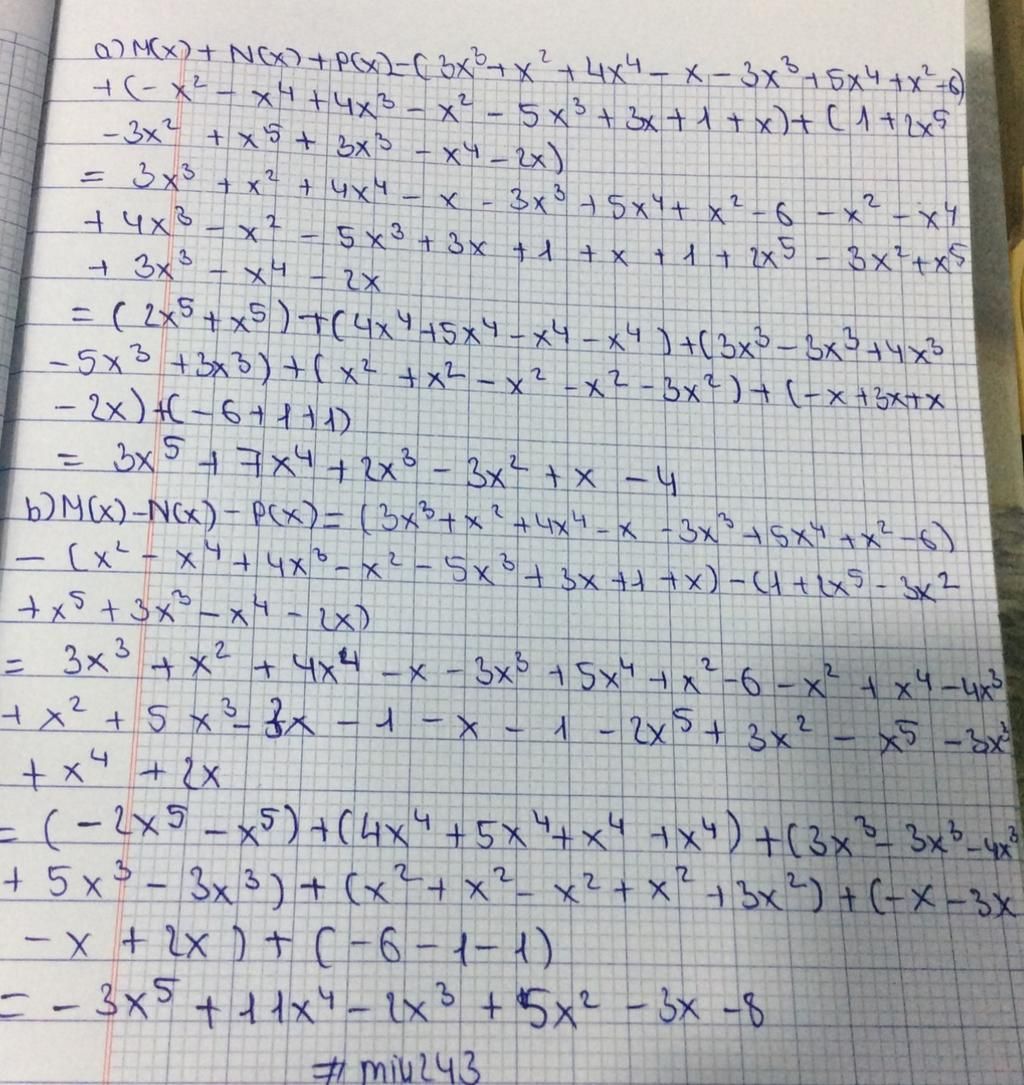 a) M(x) + N(x) + P(x) = (3x³ + x² + 4x⁴ - x - 3x³ + 5x⁴ + x² - 6)
+ (- x² - x⁴ + 4x³ - x² - 5x³ + 3x + 1 + x) + (1 + 2x⁵
- 3x² + x⁵ + 3x³ - x⁴ - 2x)
= 3x³ + x² + 4x⁴ - x - 3x³ + 5x⁴ + x² - 6 - x² - x⁴
+ 4x³ - x² - 5x³ + 3x + 1 + x + 1 + 2x⁵ - 3x² + x⁵
+ 3x³ - x⁴ - 2x
= (2x⁵ + x⁵) + (4x⁴ + 5x⁴ - x⁴ - x⁴) + (3x³ - 3x³ + 4x³
- 5x³ + 3x³) + (x² + x² - x² - x² - 3x²) + (-x + 3x + x
- 2x) + (- 6 + 1 + 1)
= 3x⁵ + 7x⁴ + 2x³ - 3x² + x - 4
b) M(x) - N(x) - P(x) = (3x³ + x² + 4x⁴ - x - 3x³ + 5x⁴ + x² - 6)
- (x² - x⁴ + 4x³ - x² - 5x³ + 3x + 1 + x) - (1 + 2x⁵ - 3x²
+ x⁵ + 3x³ - x⁴ - 2x)
= 3x³ + x² + 4x⁴ - x - 3x³ + 5x⁴ + x² - 6 - x² + x⁴ - 4x³
+ x² + 5x³ - 3x - 1 - x - 1 - 2x⁵ + 3x² - x⁵ - 3x³
+ x⁴ + 2x
= (- 2x⁵ - x⁵) + (4x⁴ + 5x⁴ + x⁴ + x⁴) + (3x³ - 3x³ - 4x³
+ 5x³ - 3x³) + (x² + x² - x² + x² + 3x²) + (-x - 3x
- x + 2x) + (- 6 - 1 - 1)
= - 3x⁵ + 11x⁴ - 2x³ + 5x² - 3x - 8
# miu243